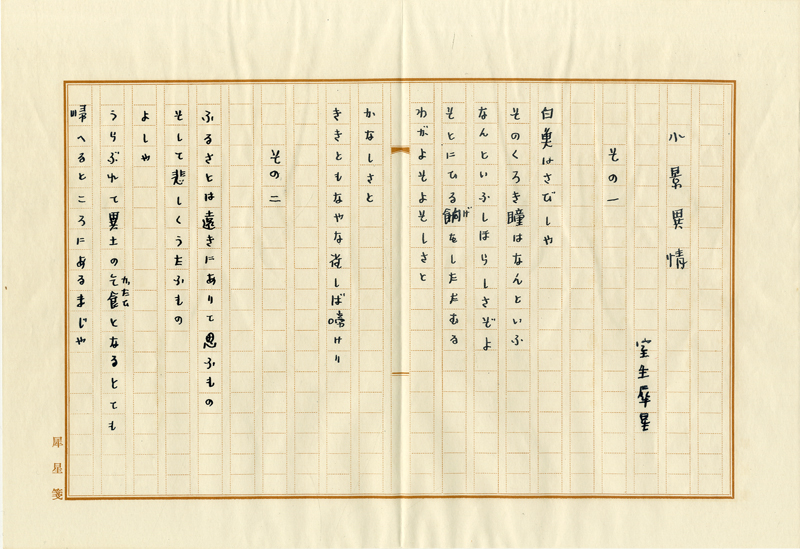 小景異情
室生犀星
その一
白魚はさびしや
そのくろき瞳はなんといふ
なんといふしほらしさぞよ
そとにひる餉げをしたたむる
わがよそよそしさと
かなしさと
ききともなやな雀しば啼けり
その二
ふるさとは遠きにありて思ふもの
そして悲しくうたふもの
よしや
うらぶれて異土の乞食かたゐとなるとても
帰へるところにあるまじや
犀星箋